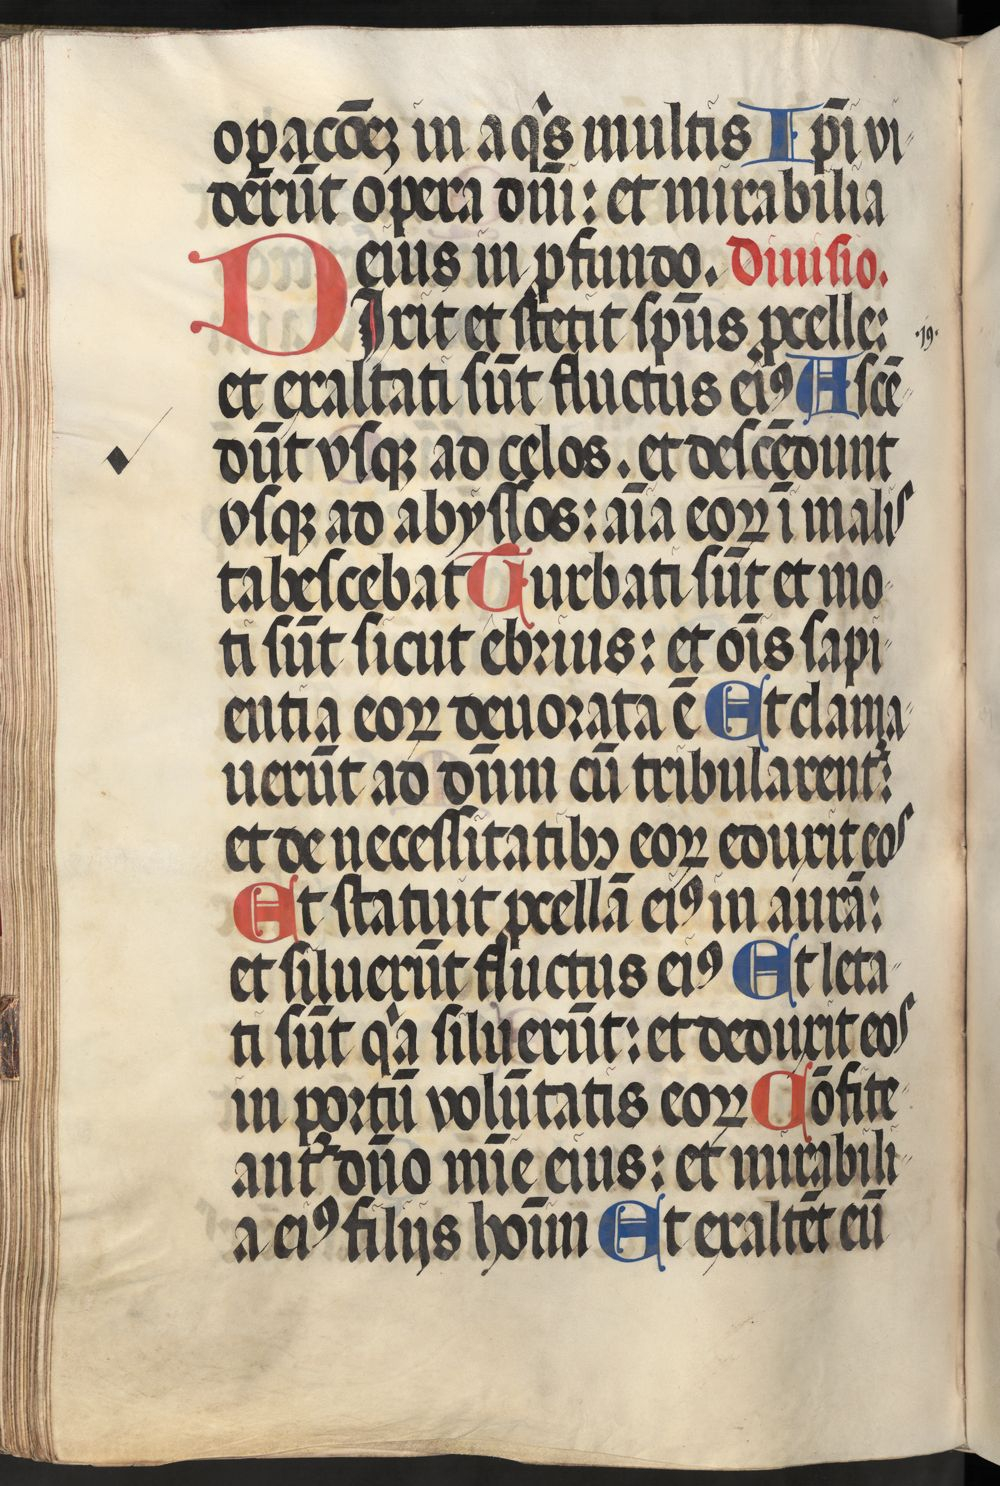 op̄acōeʒ in aq̇s multis Ip̄i vi-
derūt opera dn̄i: et mirabilia
eius in ꝓfundo. Diuisio.
DIxit et stetit sp̄us ꝓcelle: ·19·
et exaltati sūt fluctus eiꝰ Ascē-
dūt vsqꝫ ad cęlos. et descēdunt
vsqꝫ ad abyssos: aīa eoꝝ ī malis
tabescebat Turbati sūt et mo-
ti sūt sicut ebrius: et oīs sapi-
entia eoꝝ deuorata ē Et clama-
uerūt ad dn̄m cū tribularent᷑:
et de necessitatibꝫ eoꝝ eduxit eos
Et statuit ꝓcellā eiꝰ in aurā:
et siluerūt fluctus eiꝰ Et leta-
ti sūt q̇a siluerūt: et deduxit eos
in portū volūtatis eoꝝ Cōfite-
ant᷑ dn̄o mīe eius: et mirabili-
a eiꝰ filijs hoīm Et exaltēt eū